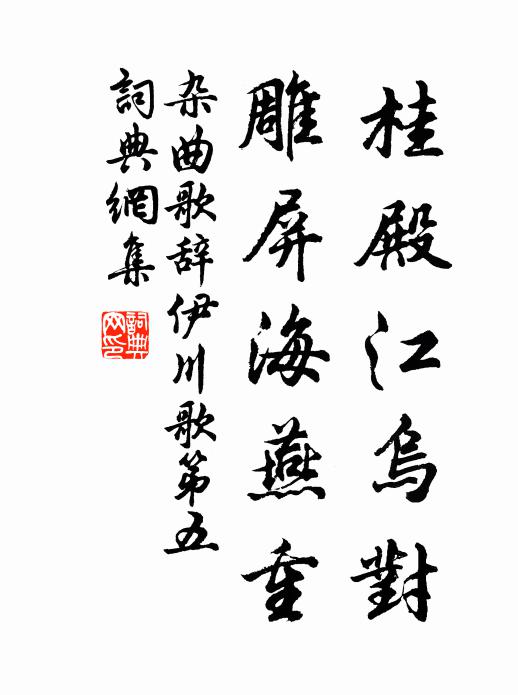 桂殿江烏對
雕屏海燕重
杂曲歌辞伊川歌第五
詞典網集
詞典网印